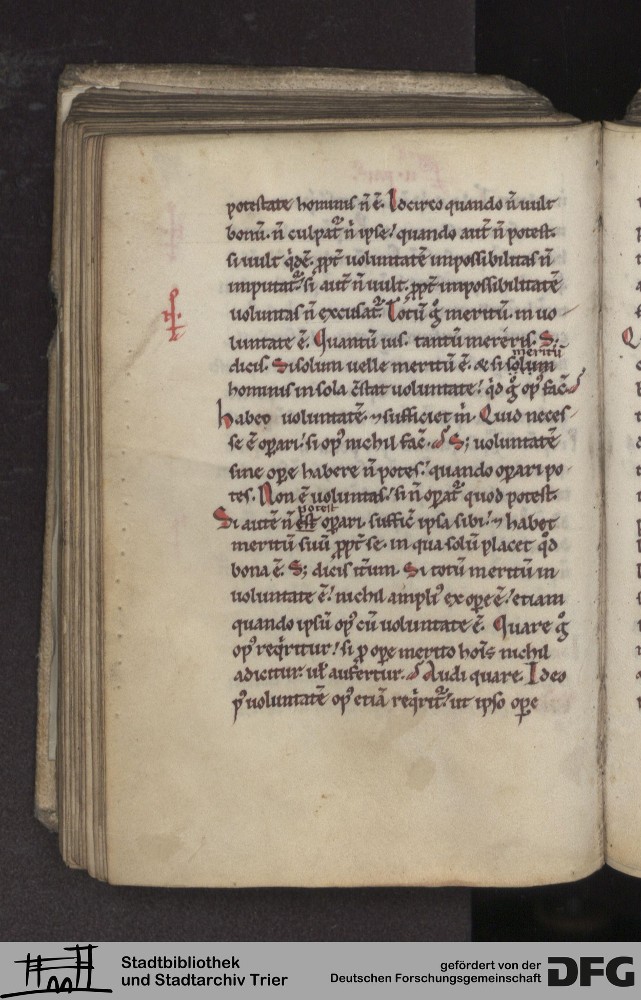 potestate hominis n̄ ē. Idcirco quando n̄ uult
bonū. n̄ culpat᷑ n̄ ipse! quando aut̄ n̄ potest.
si uult qͥdē. ꝓpt̄ uoluntatē impossibilitas n̄
imputat᷑. si aut̄ n̄ uult. ꝓpt̄ impossibilitatē
uoluntas n̄ excusat᷑. Totū gͦ meritū. in uo
luntate ē. Quantū uis. tantū mereris. S;
meritū
dicis. Si solum uelle meritū ē. & si solum
hominis in sola ↄ̄stat uoluntate! qͥd gͦ opꝰ fac̄
habeo uoluntatē. ⁊ sufficiet m̄. Quid neces
se ē oꝑari! si opꝰ nichil fac̄. S; uoluntatē
sine oꝑe habere n̄ potes! quando oꝑari po
tes. Non ē uoluntas! si n̄ oꝑat᷑ quod potest.
potest
Si autē n̄ est oꝑari. suffic̄ ipsa sibi! ⁊ habet
meritū suū ꝓpt̄ se. in qua solū placet qͦd
bona ē. S; dicis it̄um. Si totū meritū in
uoluntate ē! nichil ampliꝰ ex oꝑe ē! etiam
quando ipsū opꝰ cū uoluntate ē. Quare gͦ
opꝰ reqͥritur! si ꝓ oꝑe merito hoīs nichil
adicitur. uł aufertur. Audi quare. Ideo
pꝰ uoluntatē opꝰ etiā reqͥrit᷑! ut ipso oꝑe
Stadtbibliothek
und Stadtarchiv Trier
gefördert von der
Deutschen Forschungsgemeinschaft
DFG